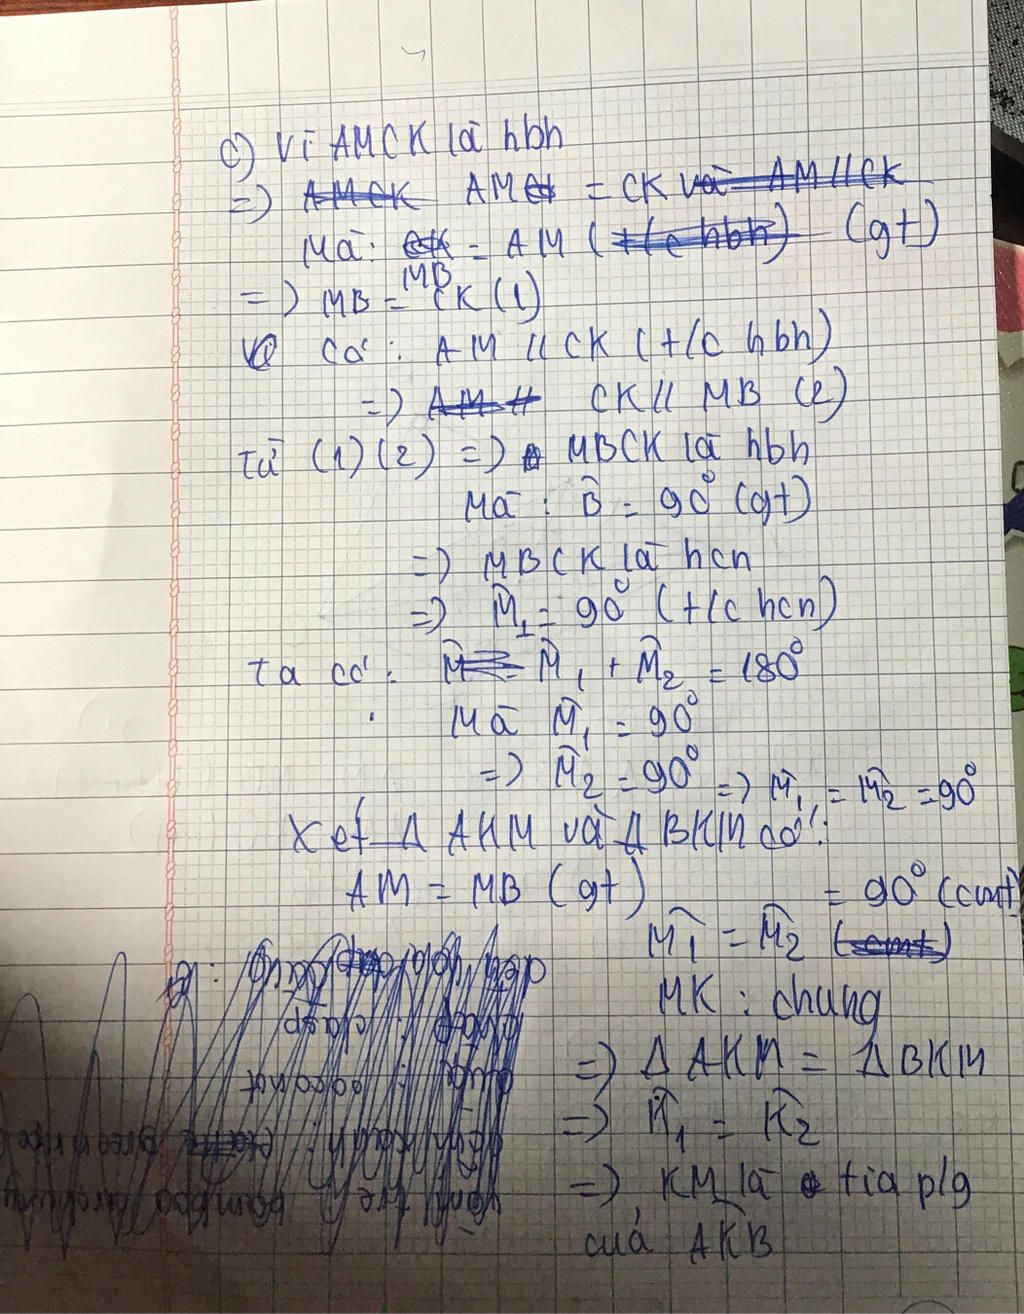 c) Vì AMCK là hbh
=) AM = CK
Mà: MB = AM (gt)
=) MB = CK (1)
Có: AM // CK (t/c hbh)
=) CK // MB (2)
Từ (1)(2) =) MBCK là hbh
Mà: B̂ = 90° (gt)
=) MBCK là hcn
=) M̂₁ = 90° (t/c hcn)
Ta có: M̂₁ + M̂₂ = 180°
Mà M̂₁ = 90°
=) M̂₂ = 90° =) M̂₁ = M̂₂ = 90°
Xét Δ AKM và Δ BKM có:
AM = MB (gt)
M̂₁ = M̂₂ = 90° (cmt)
MK : chung
=) Δ AKM = Δ BKM
=) K̂₁ = K̂₂
=) KM là tia p/g
của AK̂B